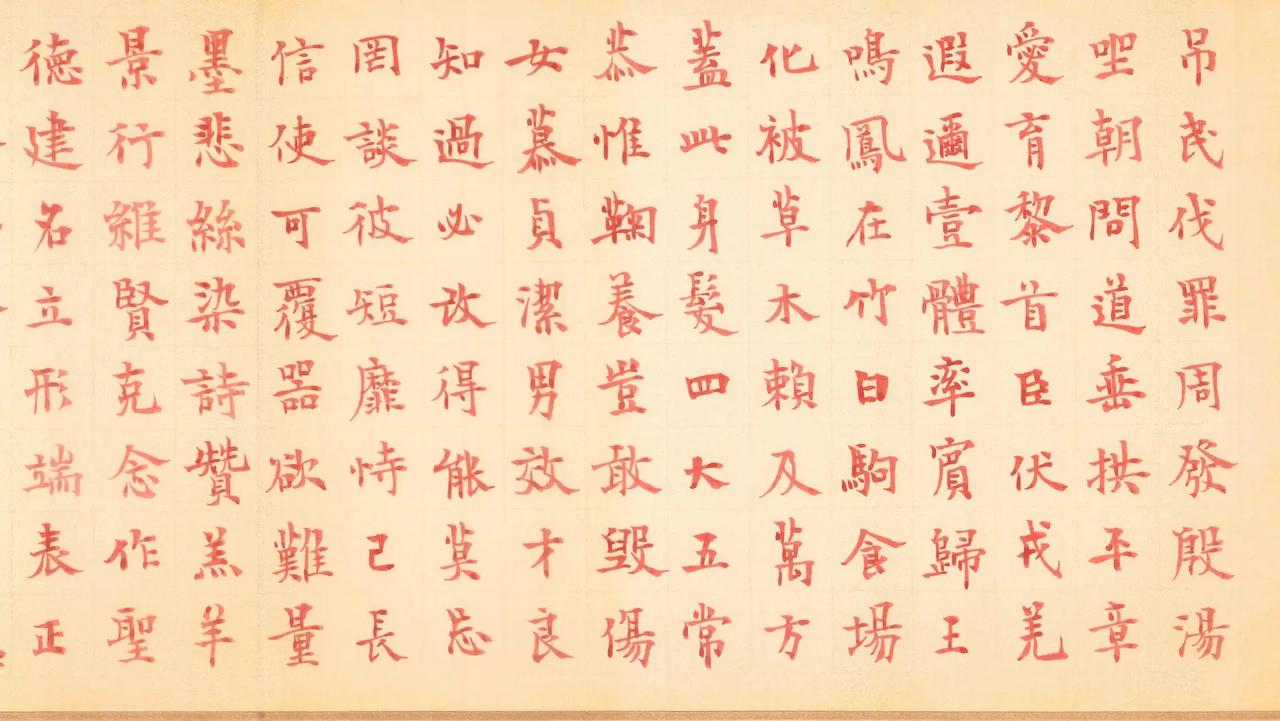 吊民伐罪周發殷湯
坐朝問道垂拱平章
愛育黎首臣伏戎羌
遐邇壹體率賓歸王
鳴鳳在竹白駒食場
化被草木賴及萬方
蓋此身髮四大五常
恭惟鞠養豈敢毀傷
女慕貞潔男效才良
知過必改得能莫忘
罔談彼短靡恃己長
信使可覆器欲難量
墨悲絲染詩贊羔羊
景行維賢克念作聖
徳建名立形端表正